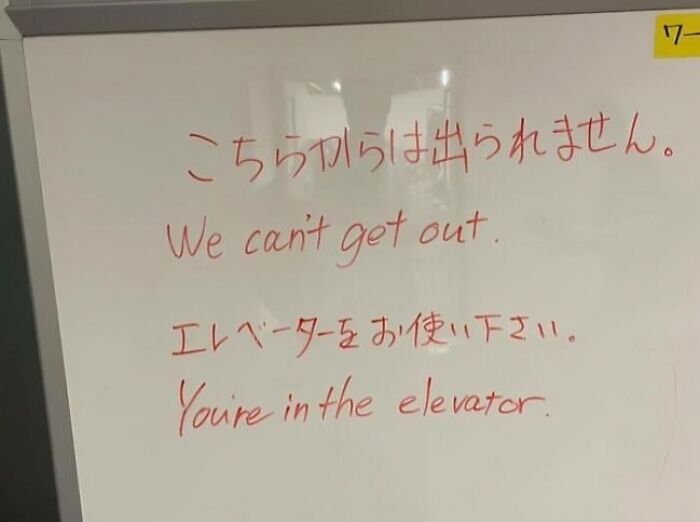 ワー
こちらからは出られません。
We can't get out.
エレベーターをお使い下さい。
You're in the elevator.